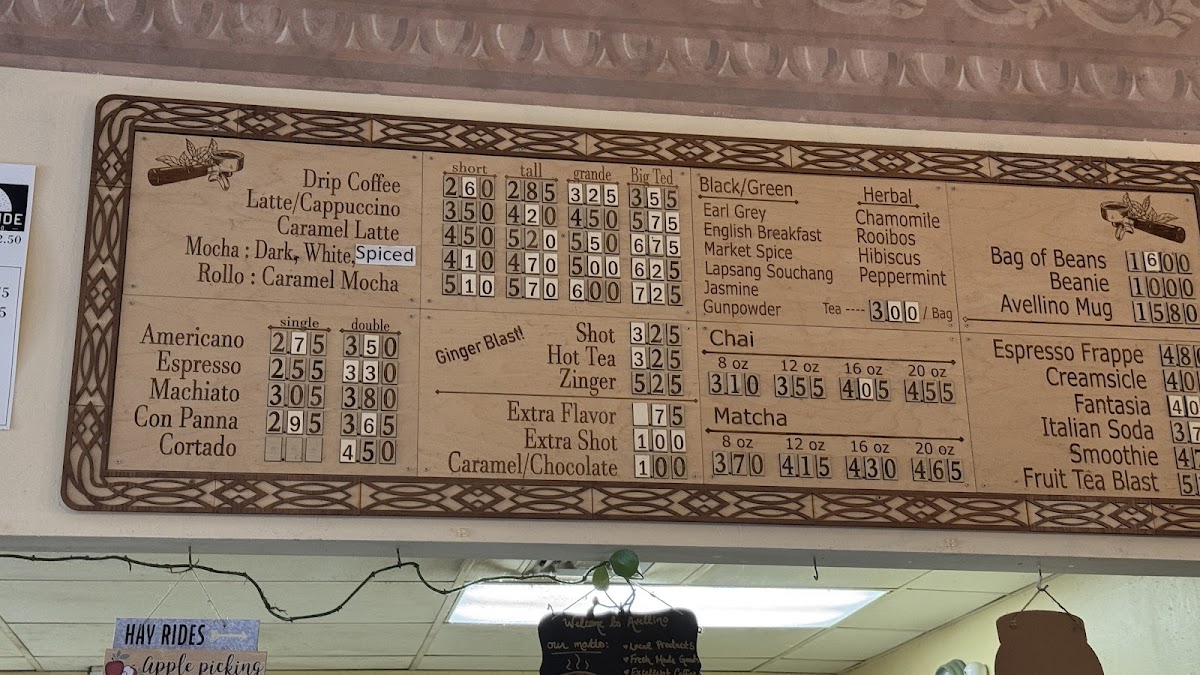 IDE
2.50
5
5
short tall grande Big Ted
Drip Coffee 260 285 325 355
Latte/Cappuccino 350 420 450 575
Caramel Latte 450 520 550 675
Mocha : Dark, White, Spiced 410 470 500 625
Rollo : Caramel Mocha 510 570 600 725
single double
Americano 275 350
Espresso 255 330
Machiato 305 380
Con Panna 295 365
Cortado 450
Ginger Blast!
Shot 325
Hot Tea 325
Zinger 525
Extra Flavor 75
Extra Shot 100
Caramel/Chocolate 100
Black/Green
Earl Grey
English Breakfast
Market Spice
Lapsang Souchang
Jasmine
Gunpowder
Herbal
Chamomile
Rooibos
Hibiscus
Peppermint
Tea ---- 300 / Bag
Chai
8 oz 12 oz 16 oz 20 oz
310 355 405 455
Matcha
8 oz 12 oz 16 oz 20 oz
370 415 430 465
Bag of Beans 1600
Beanie 1000
Avellino Mug 1580
Espresso Frappe 480
Creamsicle 40
Fantasia 40
Italian Soda 37
Smoothie 47
Fruit Tea Blast 5
HAY RIDES
Apple picking
Welcome to Avellino
our motto:
♥ Local Products
♥ Fresh Made Goods
♥ Excellent Coffee